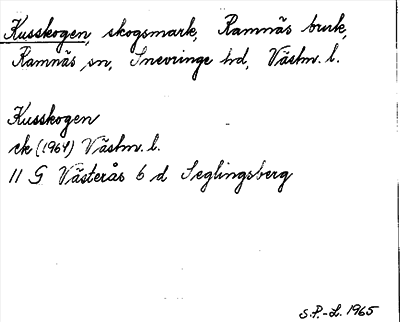 Kusskogen, skogsmark, Ramnäs bruk,
Ramnäs sn, Snevringe hd, Västm. l.
Kusskogen
ek (1964) Västm. l.
11 G Västerås 6 d Seglingsberg
S.P.-L. 1965